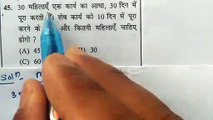 45. 30 महिलाएँ एक कार्य का आधा, 30 दिन में
पूरा करती शेष कार्य को 10 दिन में पूरा
करने के और कितनी महिलाएँ चाहिए
होगी ?
(A) 45 30
(C) 60
Solⁿ